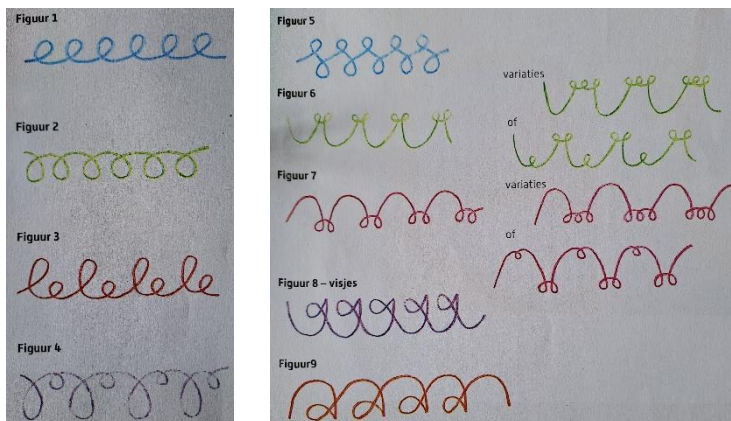 Figuur 1
Figuur 2
Figuur 3
Figuur 4
Figuur 5
Figuur 6
variaties
of
Figuur 7
variaties
of
Figuur 8 – visjes
Figuur9